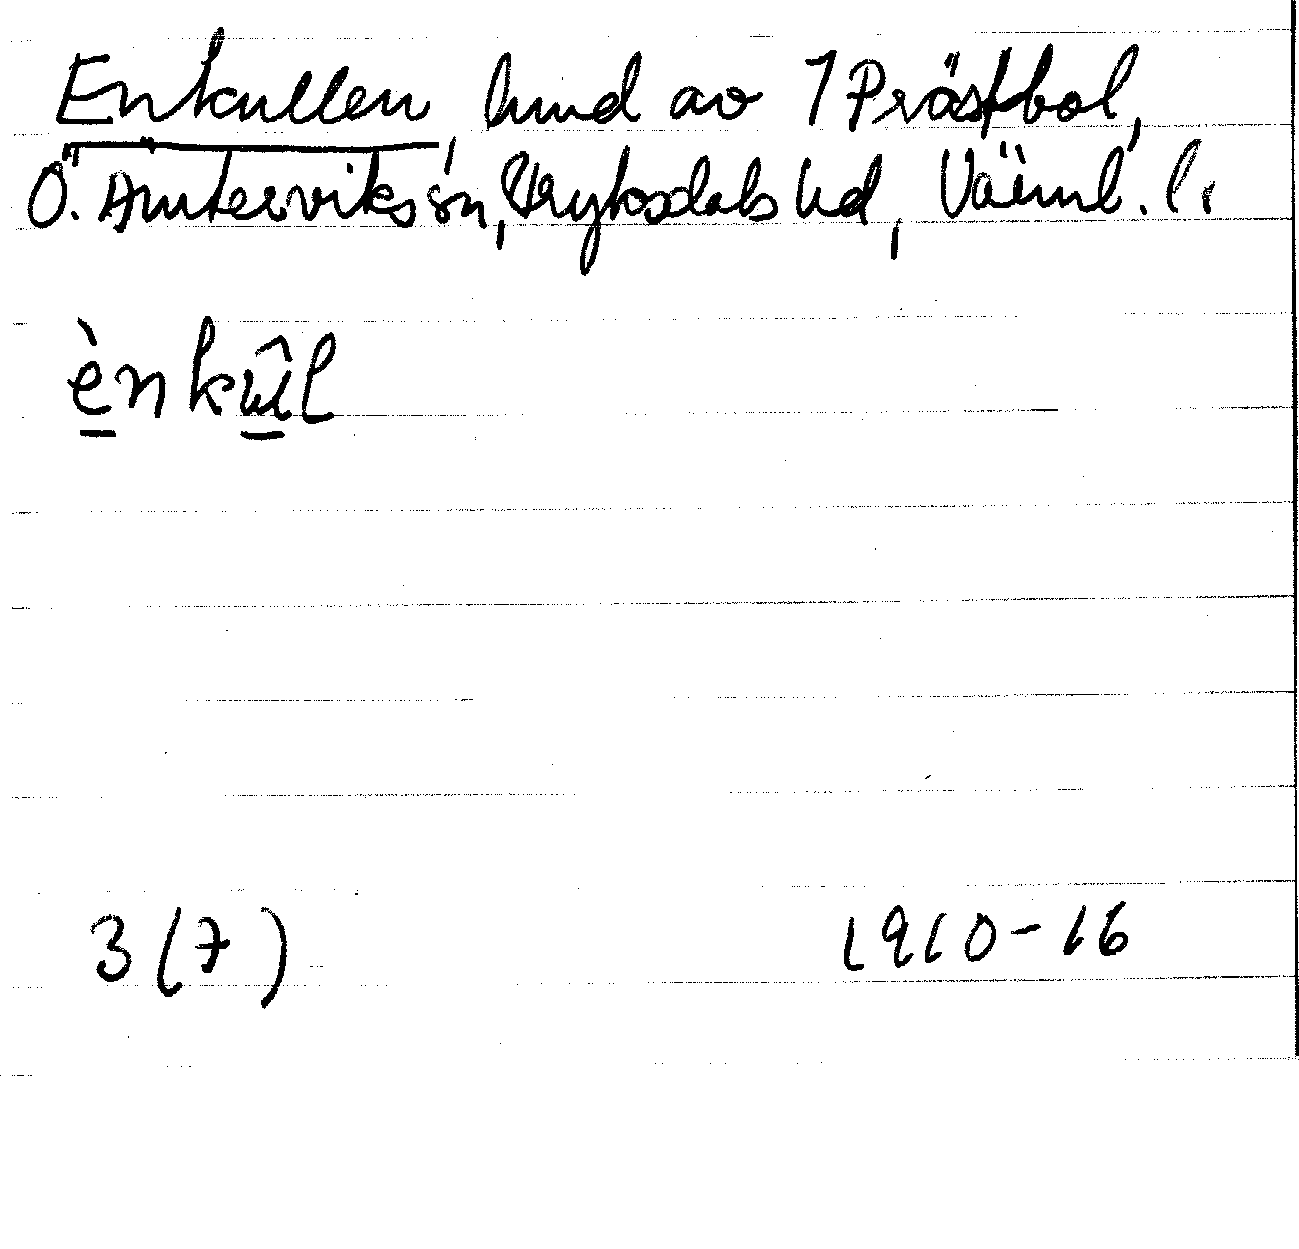 Enkullen, hmd av 1 Prästbol,
Ö. Ämterviks sn, Fryksdals hd, Värml. l.
ènkûl
3 (7) 1910-16